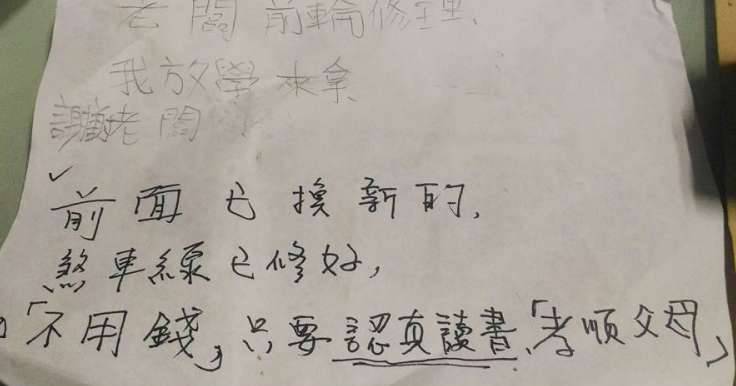 老闆前輪修理、
我放學來拿
謝謝老闆
✓
前面已換新的，
煞車線已修好，
「不用錢」只要認真讀書、「孝順父母」